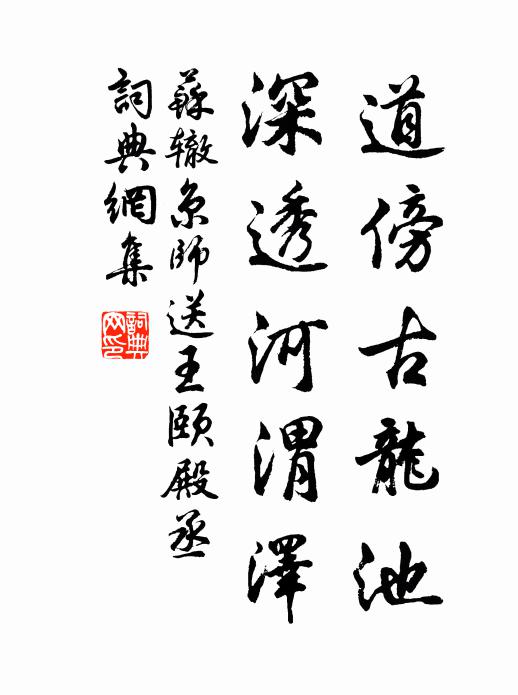 道傍古龍池
深透河渭澤
蘇辙京師送王頤殿丞
詞典網集
詞典網印